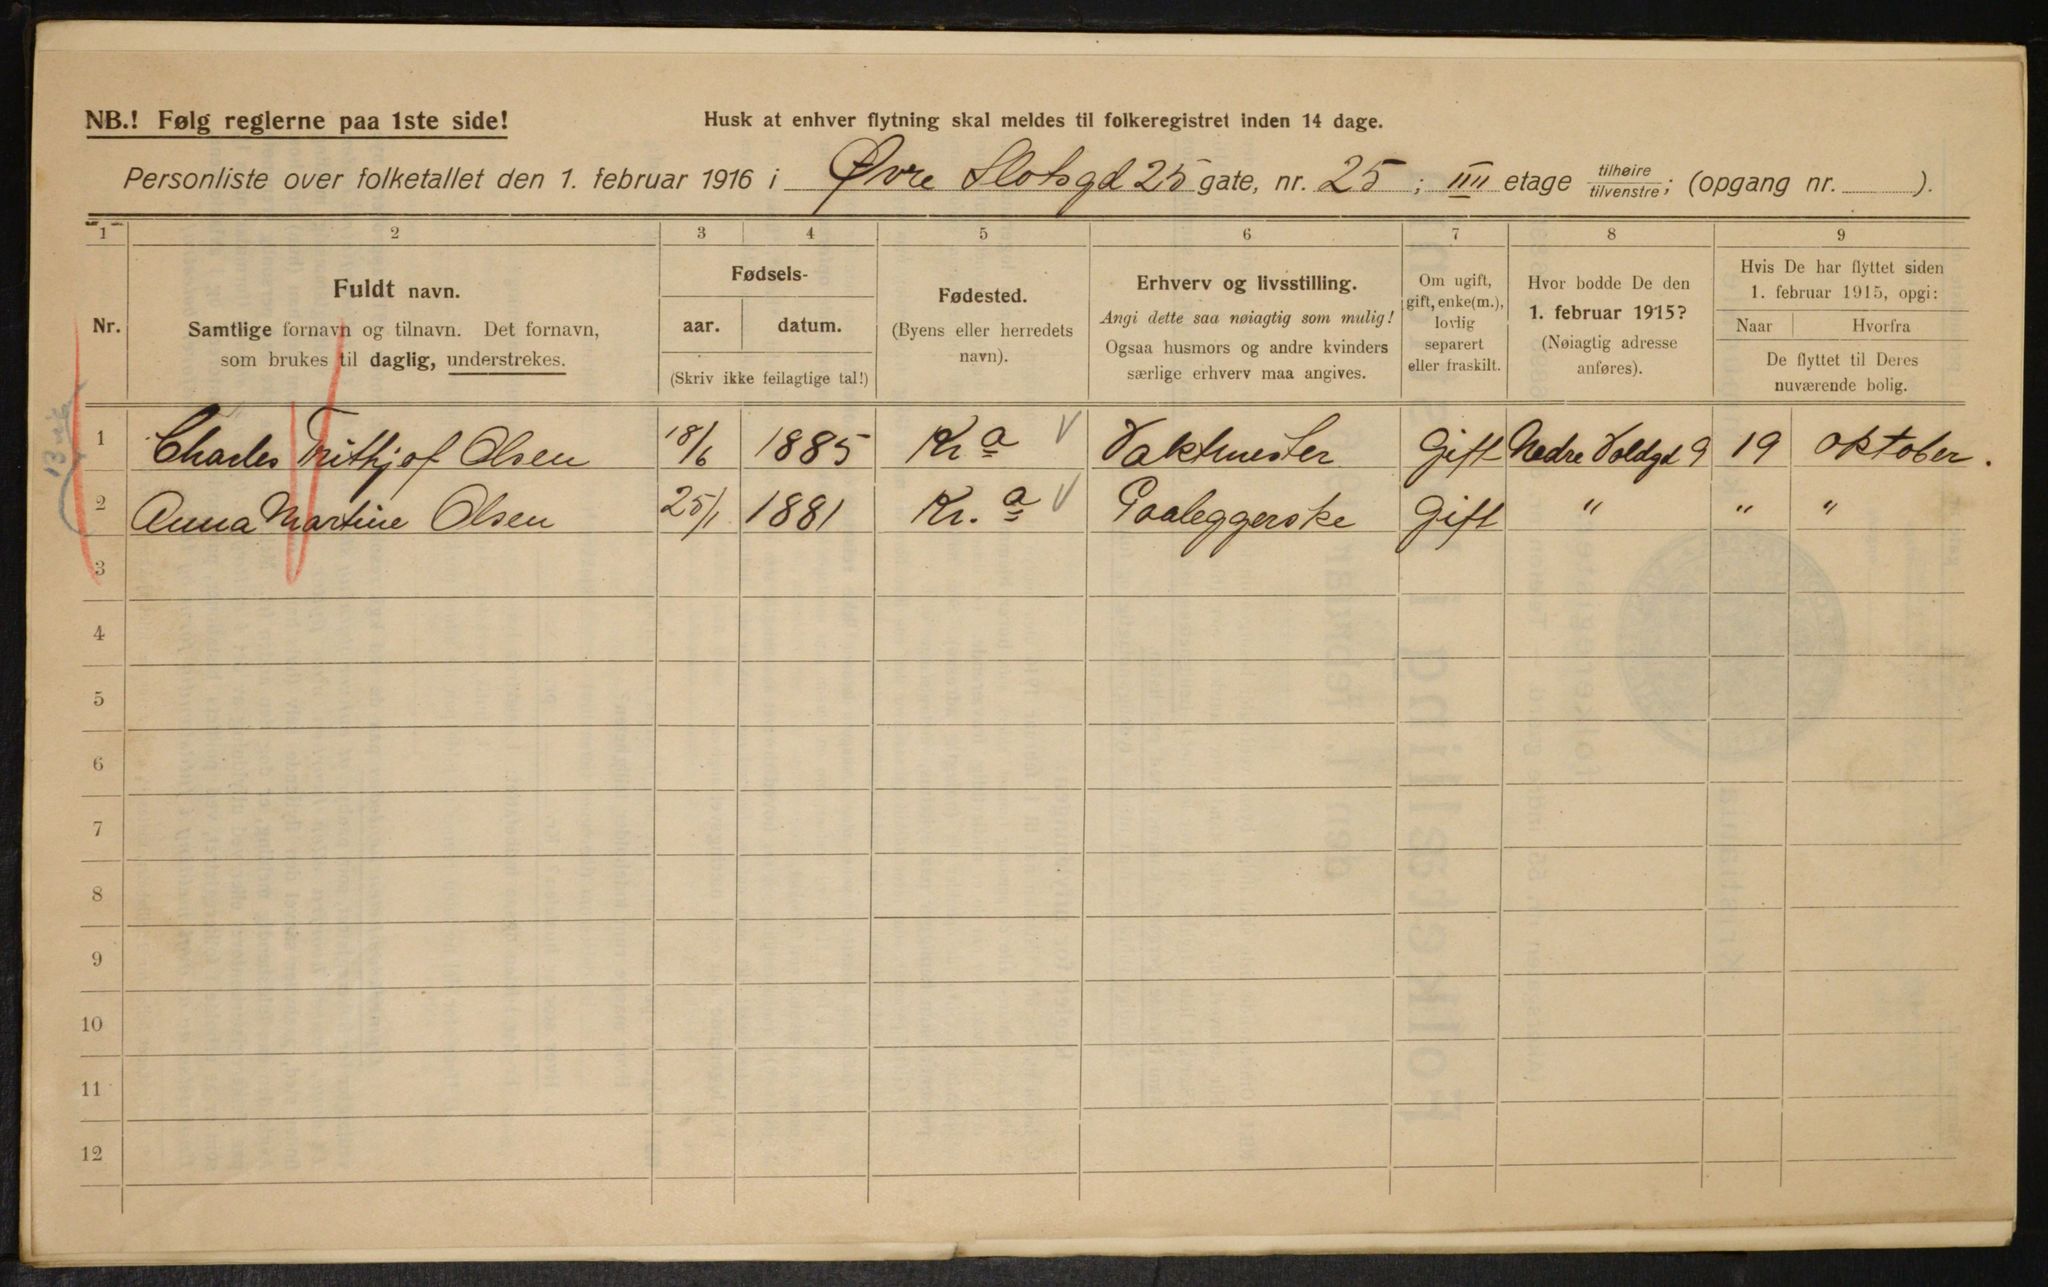 NB.! Følg reglerne paa 1ste side!
Husk at enhver flytning skal meldes til folkeregistret inden 14 dage.
Personliste over folketallet den 1. februar 1916 i Øvre Slotsgd 25 gate, nr. 25; IIII etage tilhøire/tilvenstre; (opgang nr. ).
1 2 3 4 5 6 7 8 9
Nr.
Fuldt navn.
Samtlige fornavn og tilnavn. Det fornavn,
som brukes til daglig, understrekes.
Fødsels-
aar. datum.
(Skriv ikke feilagtige tal!)
Fødested.
(Byens eller herredets
navn).
Erhverv og livsstilling.
Angi dette saa nøiagtig som mulig!
Ogsaa husmors og andre kvinders
særlige erhverv maa angives.
Om ugift,
gift, enke(m.),
lovlig
separert
eller fraskilt.
Hvor bodde De den
1. februar 1915?
(Nøiagtig adresse
anføres).
Hvis De har flyttet siden
1. februar 1915, opgi:
Naar Hvorfra
De flyttet til Deres
nuværende bolig.
1 Charles Frithjof Olsen 18/6 1885 Kr a Vaktmester Gift Nedre Voldgd 9 19 oktober.
2 Anna Martine Olsen 25/1 1881 Kr. a Paaleggerske Gift " " "
3
4
5
6
7
8
9
10
11
12